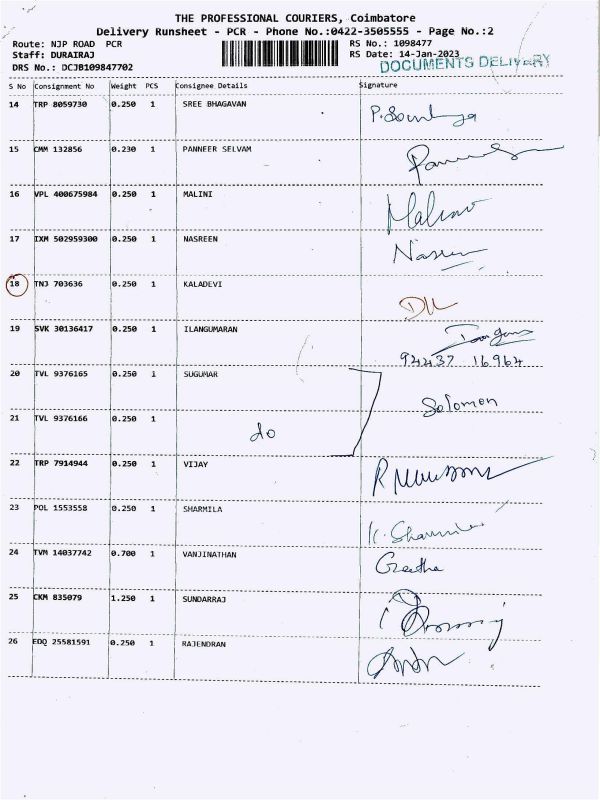 THE PROFESSIONAL COURIERS, Coimbatore
Delivery Runsheet - PCR - Phone No.:0422-3505555 - Page No.:2
Route: NJP ROAD PCR
RS No.: 1098477
Staff: DURAIRAJ
RS Date: 14-Jan-2023
DRS No.: DCJB109847702
DOCUMENTS DELIVERY
S No Consignment No Weight PCS Consignee Details Signature
14 TRP 8059730 0.250 1 SREE BHAGAVAN
15 CMM 132856 0.230 1 PANNEER SELVAM
16 VPL 400675984 0.250 1 MALINI Malini
17 IXM 502959300 0.250 1 NASREEN Nasreen
18 TNJ 703636 0.250 1 KALADEVI DL
19 SVK 30136417 0.250 1 ILANGUMARAN
94437 16964
20 TVL 9376165 0.250 1 SUGUMAR
Solomen
21 TVL 9376166 0.250 1 do
22 TRP 7914944 0.250 1 VIJAY
23 POL 1553558 0.250 1 SHARMILA K. Sharmila
24 TVM 14037742 0.700 1 VANJINATHAN Geetha
25 CKM 835079 1.250 1 SUNDARRAJ
26 EDQ 25581591 0.250 1 RAJENDRAN